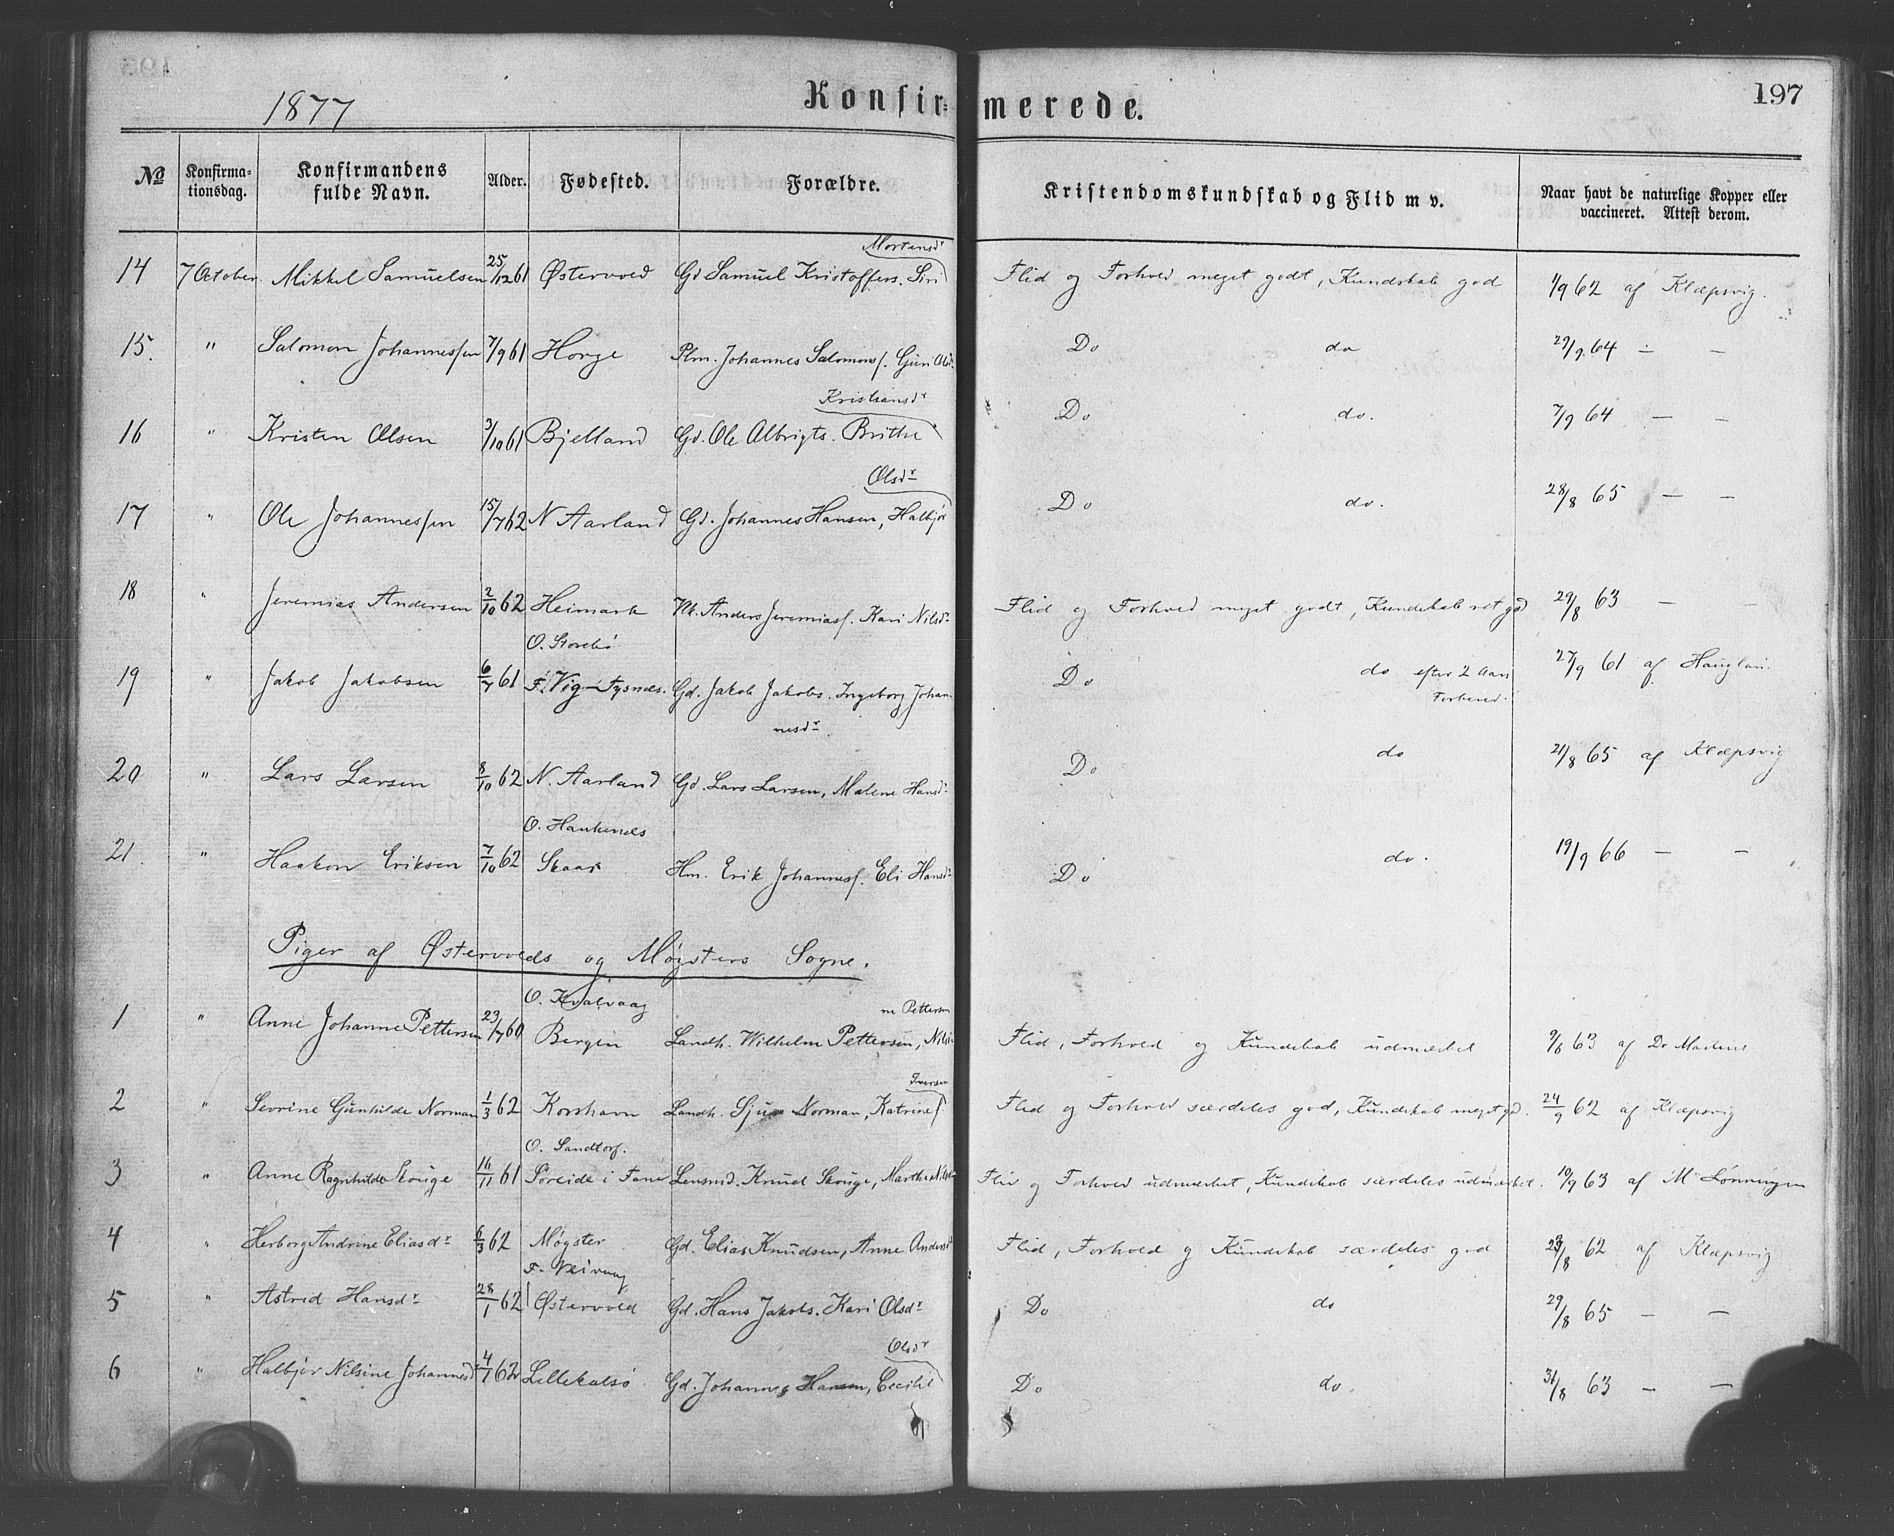 1877 Konfirmerede. 197
№ Konfirmationsdag. Konfirmandens fulde Navn. Alder. Fødested. Forældre. Kristendomskundskab og Flid m v. Naar havt de naturlige Kopper eller vaccineret. Attest derom.
Mortensdr
14 7 October Mikkel Samuelsen 25/12 61 Østervold Gd Samuel Kristoffers. Siri Flid og Forhold meget godt, Kundskab god 1/9 62 af Klæpsvig.
15. " Salomon Johannessen 7/9 61 Horge Plm. Johannes Salomons. Guri Olsd. Do do 29/9 64 — —
Kristiansdr
16 " Kristen Olsen 3/10 61 Bjelland Gd. Ole Albrigts. Brithe Do do. 7/9 64 — —
Olsdr
17 " Ole Johannessen 15/7 62 N Aarland Gd. Johannes Hansen, Halbjør Do do. 28/8 65 — —
18 " Jeremias Andersen 2/10 62 Heimark M. Anders Jeremias. Kari Nilsdr Flid og Forhold meget godt, Kundskab ret god 29/8 63 — —
O. Storebø
19 " Jakob Jakobsen 6/7 61 F. Vig - Tysnæs. Gd. Jakob Jakobs. Ingeborg Johan- Do do efter 2 Aars 27/9 61 af
nesdr. Forbered.
20 " Lars Larsen 8/10 62 N. Aarland Gd. Lars Larsen, Malene Hansdr Do do 21/8 65 af Klæpsvig
O. Haukenæs
21. " Haakon Eriksen 7/10 62 Skaar Hm. Erik Johanness. Eli Hansdr Do do. 19/9 66 — —
Piger af Østervolds og Møgsters Sogne.
O. Kvalvaag
ne Pettersen
1 " Anne Johanne Pettersen 23/7 60 Bergen Landh. Wilhelm Pettersen, Nilsi- Flid, Forhold og Kundskab udmærket 9/6 63 af Dr Martens
Iversen
2 " Sevrine Gunhilde Norman 1/3 62 Korshavn Landh. Sjur Norman, Katrine Flid og Forhold særdeles god, Kundskab meget gd. 24/9 62 af Klæpsvig
O. Sandtorf.
3 " Anne Ragnhilde Skouge 16/11 61 Søreide i Fane Lensmd. Knud Skouge, Marthe Flid og Forhold udmærket, Kundskab særdeles udmærket. 10/9 63 af M Lønningen
4 " Herborg Andrine Eliasdr 6/3 62 Møgster Gd. Elias Knudsen, Anne Andersdr Flid, Forhold og Kundskab særdeles god 28/8 62 af Klæpsvig
F. Neivaag
5 " Astrid Hansdr 28/1 62 Østervold Gd. Hans Jakobs. Kari Olsdr Do do 29/8 65 — —
Olsdr
6 " Halbjør Nilsine Johannesd 4/1 62 Lillekalsø Gd. Johannes Hansen, Cecilie Do do. 31/8 63 — —